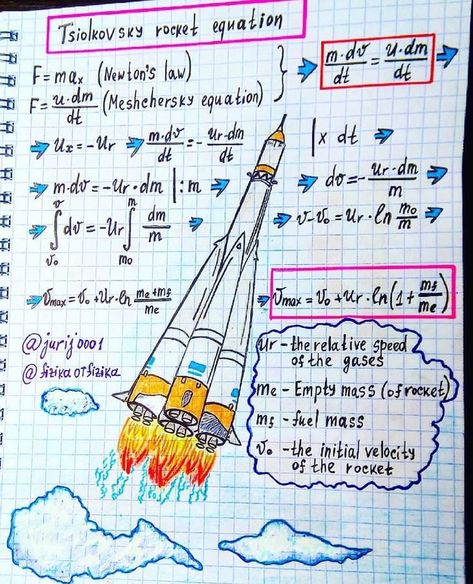 Tsiolkovsky rocket equation
F = maₓ (Newton's law)
F = u·dm/dt (Meshchersky equation)
m·dv/dt = u·dm/dt
uₓ = -ur
m·dv/dt = - ur·dm/dt
| x dt
m·dv = -ur·dm |:m
dv = - ur·dm/m
∫ᵥ₀ᵛ dv = -ur ∫ₘ₀ᵐ dm/m
v-v₀ = ur·ln m₀/m
vmax = v₀ + ur·ln me+mf/me
vmax = v₀ + ur·ln(1 + mf/me)
@jurij0001
@fizikaotfizika
ur - the relative speed
of the gases
me - Empty mass (of rocket)
mf - fuel mass
v₀ - the initial velocity
of the rocket